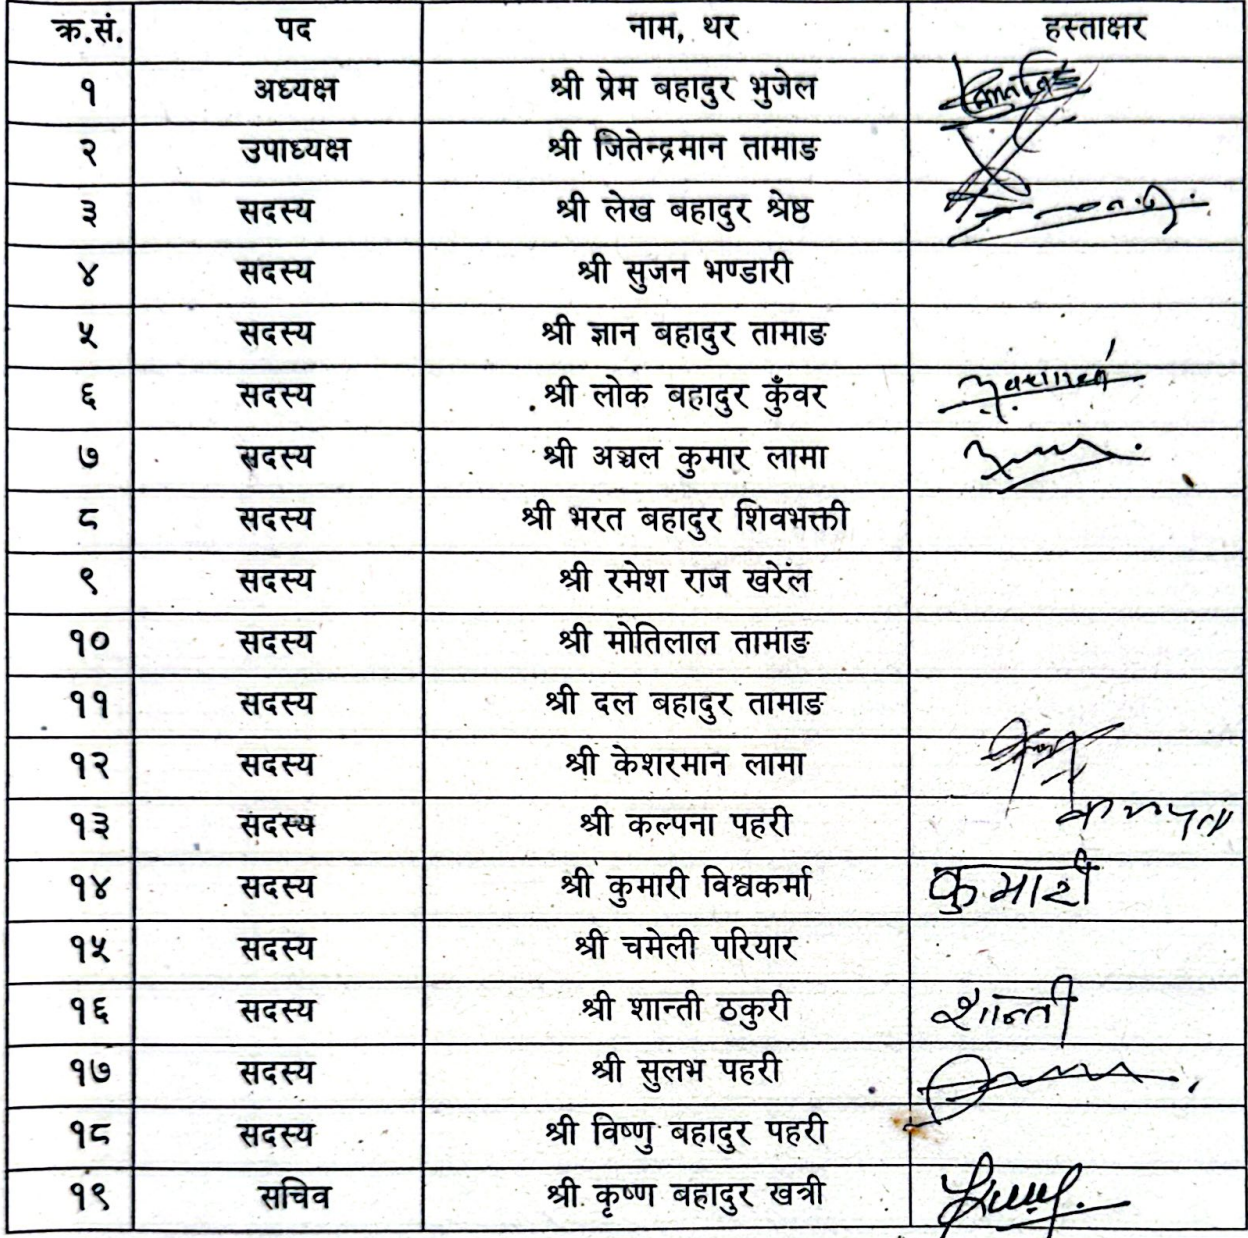 क्र.सं. पद नाम, थर हस्ताक्षर
१ अध्यक्ष श्री प्रेम बहादुर भुजेल
२ उपाध्यक्ष श्री जितेन्द्रमान तामाङ
३ सदस्य श्री लेख बहादुर श्रेष्ठ
४ सदस्य श्री सुजन भण्डारी
५ सदस्य श्री ज्ञान बहादुर तामाङ
६ सदस्य श्री लोक बहादुर कुँवर
७ सदस्य श्री अञ्चल कुमार लामा
८ सदस्य श्री भरत बहादुर शिवभक्ती
९ सदस्य श्री रमेश राज खरेल
१० सदस्य श्री मोतिलाल तामाङ
११ सदस्य श्री दल बहादुर तामाङ
१२ सदस्य श्री केशरमान लामा
१३ सदस्य श्री कल्पना पहरी
१४ सदस्य श्री कुमारी विश्वकर्मा कुमारी
१५ सदस्य श्री चमेली परियार
१६ सदस्य श्री शान्ती ठकुरी शान्ती
१७ सदस्य श्री सुलभ पहरी
१८ सदस्य श्री विष्णु बहादुर पहरी
१९ सचिव श्री कृष्ण बहादुर खत्री